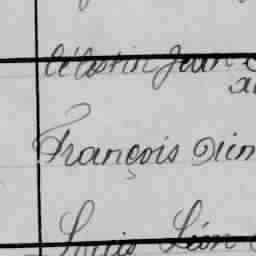 Célestin Jean
François
Louis Léon